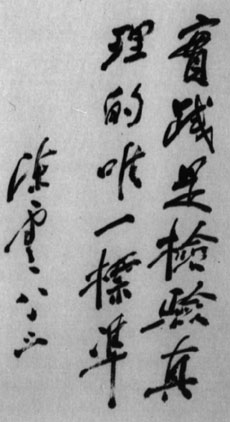 實踐是檢驗真
理的唯一標準
陳雲 八十三